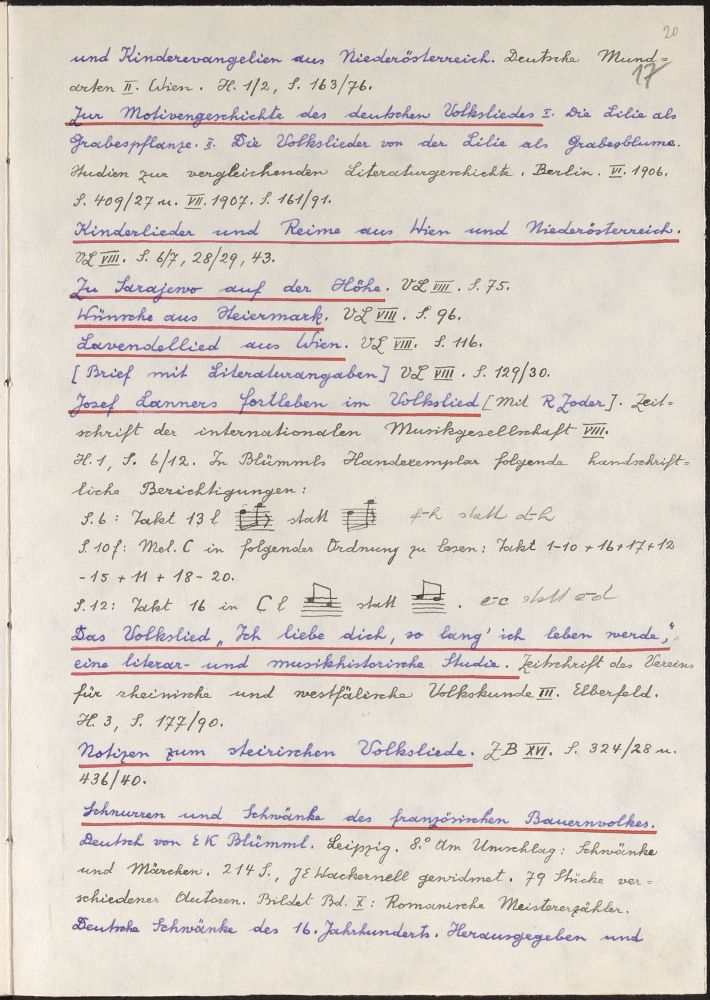 20
und Kinderevangelien aus Niederösterreich. Deutsche Mund=
17
arten II. Wien. H. 1/2, S. 163/76.
Zur Motivengeschichte des deutschen Volksliedes I. Die Lilie als
Grabespflanze. II. Die Volkslieder von der Lilie als Grabesblume.
Studien zur vergleichenden Literaturgeschichte. Berlin. VI. 1906.
S. 409/27 u. VII. 1907. S. 161/91.
Kinderlieder und Reime aus Wien und Niederösterreich.
VL VIII. S. 6/7, 28/29, 43.
Zu Sarajewo auf der Höhe. VL VIII. S. 75.
Wünsche aus Steiermark. VL VIII. S. 96.
Lavendellied aus Wien. VL VIII. S. 116.
[Brief mit Literaturangaben] VL VIII. S. 129/30.
Josef Lanners Fortleben im Volkslied [mit R Zoder]. Zeit=
schrift der internationalen Musikgesellschaft VIII.
H. 1, S. 6/12. In Blümmls Handexemplar folgende handschrift=
liche Berichtigungen:
S. 6: Takt 13 l statt f-h statt d-h
S. 10 f: Mel. C in folgender Ordnung zu lesen: Takt 1-10 + 16+17+12
-15 + 11 + 18-20.
S. 12: Takt 16 in C l statt . e-c statt e-d
Das Volkslied „Ich liebe dich, so lang' ich leben werde,"
eine literar- und musikhistorische Studie. Zeitschrift des Vereins
für rheinische und westfälische Volkskunde III. Elberfeld.
H. 3, S. 177/90.
Notizen zum steirischen Volksliede. ZB XVI. S. 324/28 u.
436/40.
Schnurren und Schwänke des französischen Bauernvolkes.
Deutsch von E K Blümml. Leipzig. 8.° Am Umschlag: Schwänke
und Märchen. 214 S., J E Wackernell gewidmet. 79 Stücke ver=
schiedener Autoren. Bildet Bd. X: Romanische Meistererzähler.
Deutsche Schwänke des 16. Jahrhunderts. Herausgegeben und